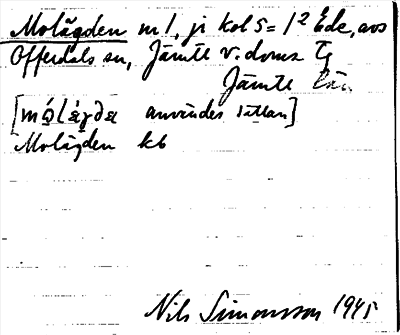 Molägden m l, ji kol 5 = 1² Ede, avs
Offerdals sn, Jämtl v. doms Tg
Jämtl län
användes sällan]
Molägden kb
Nils Simonsson 1945